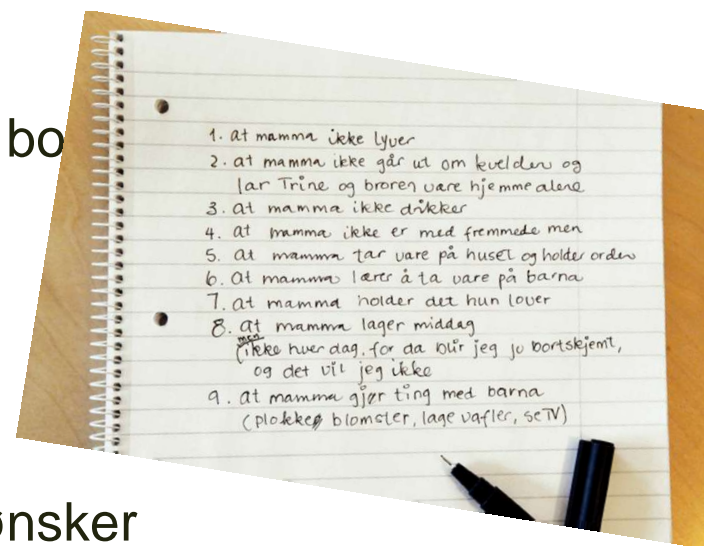 bo
1. at mamma ikke lyver
2. at mamma ikke går ut om kvelden og
lar Trine og broren være hjemme alene
3. at mamma ikke drikker
4. at mamma ikke er med fremmede men
5. at mamma tar vare på huset og holder orden
6. at mamma lærer å ta vare på barna
7. at mamma holder det hun lover
8. at mamma lager middag
men
(ikke hver dag, for da blir jeg jo bortskjemt,
og det vil jeg ikke
9. at mamma gjør ting med barna
(plokke blomster, lage vafler, se TV)
ønsker